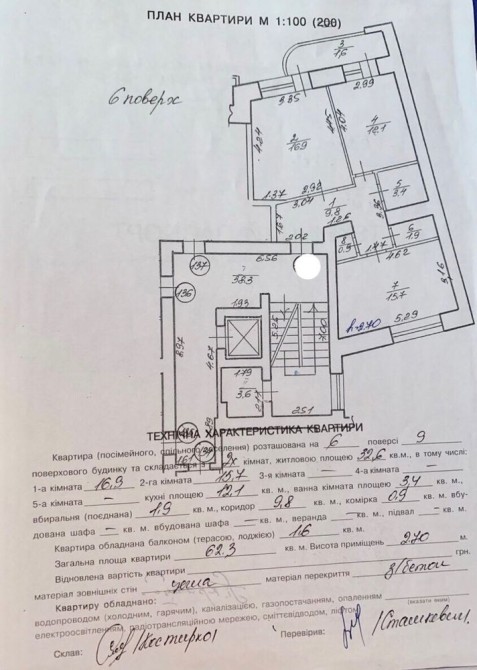 ПЛАН КВАРТИРИ М 1:100 (200)
6 поверх
3
1.6
3.35
2.99
4.34
2
16.9
4
12.1
1.37
2.92
3.04
1
9.8
5
3.4
6
1.9
8
0.9
1.47
4.62
2.02
7
15.7
3.16
5.29
h-2.70
6.56
137
136
1.93
5.25
7.00
8.97
4.67
1.79
3.6
2.51
ТЕХНІЧНА ХАРАКТЕРИСТИКА КВАРТИРИ
Квартира (посімейного, спільного заселення) розташована на 6 поверсі 9
поверхового будинку та складається з 2х кімнат, житловою площею 32,6 кв. м., в тому числі:
1-а кімната 16,9 2-га кімната 15,7 3-я кімната — 4-а кімната —
5-а кімната — кухні площею 12.1 кв. м., ванна кімната площею 3.4 кв. м.,
вбиральня (поєднана) 1.9 кв. м., коридор 9.8 кв. м., комірка 0.9 кв. м. вбу-
дована шафа — кв. м. вбудована шафа — кв. м., веранда — кв. м., підвал — кв. м.
Квартира обладнана балконом (терасою, лоджією) 1.6 кв. м.
Загальна площа квартири 62.3 кв. м. Висота приміщень 2.70 м.
Відновлена вартість квартири грн.
матеріал зовнішніх стін цегла матеріал перекриття з/бетон
Квартиру обладнано:
водопроводом (холодним, гарячим), каналізацією, газопостачанням, опаленням
(вказати яким)
електроосвітленням, радіотрансляційною мережею, сміттєвідводом, ліфтом
Склав: Перевірив: